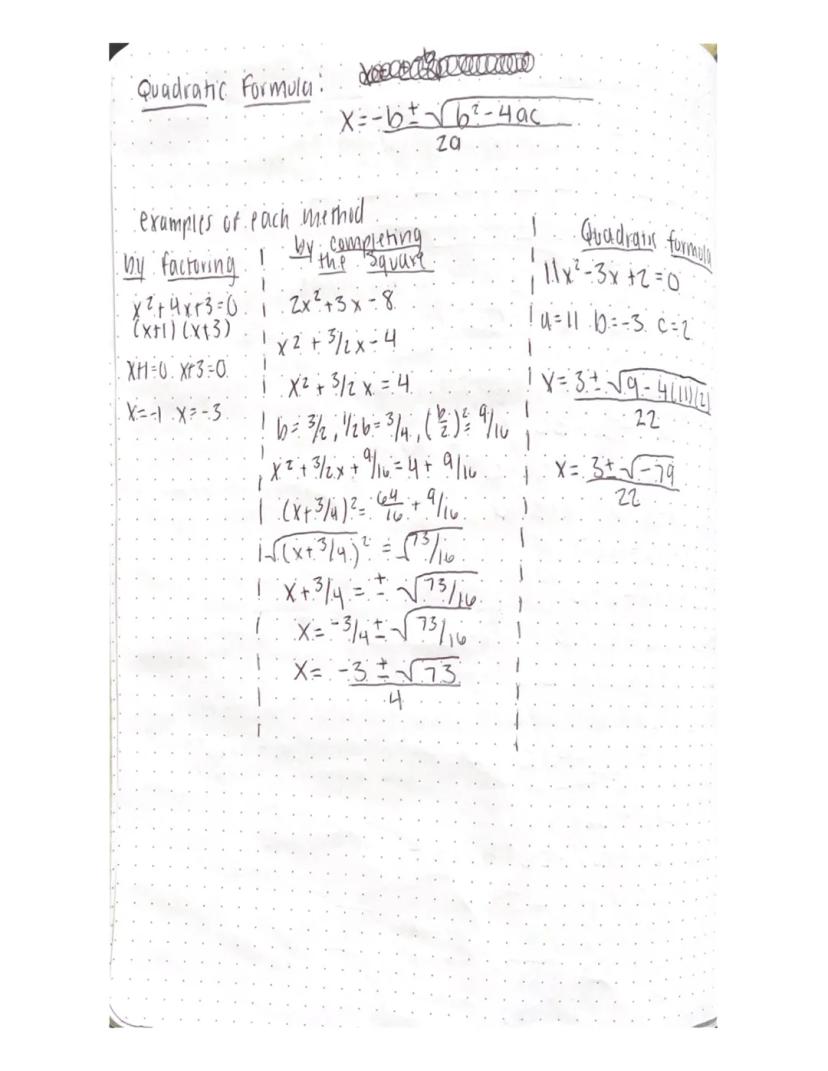 Quadratic Formula:
x = -b ± √b² - 4ac
2a
examples of each method
by factoring
x² + 4x + 3 = 0
(x+1) (x+3)
x+1=0 x+3=0
x=-1 x=-3
by completing
the square
2x² + 3x - 8
x² + 3/2 x - 4
x² + 3/2 x = 4
b = 3/2, 1/2 b = 3/4, (b/2)² = 9/16
x² + 3/2 x + 9/16 = 4 + 9/16
(x + 3/4)² = 64/16 + 9/16
√(x + 3/4)² = √73/16
x + 3/4 = ± √73/16
x = -3/4 ± √73/16
x = -3 ± √73
4
Quadratic formula
11x² - 3x + 2 = 0
a = 11 b = -3 c = 2
x = 3 ± √9 - 4(11)(2)
22
x = 3 ± √-79
22